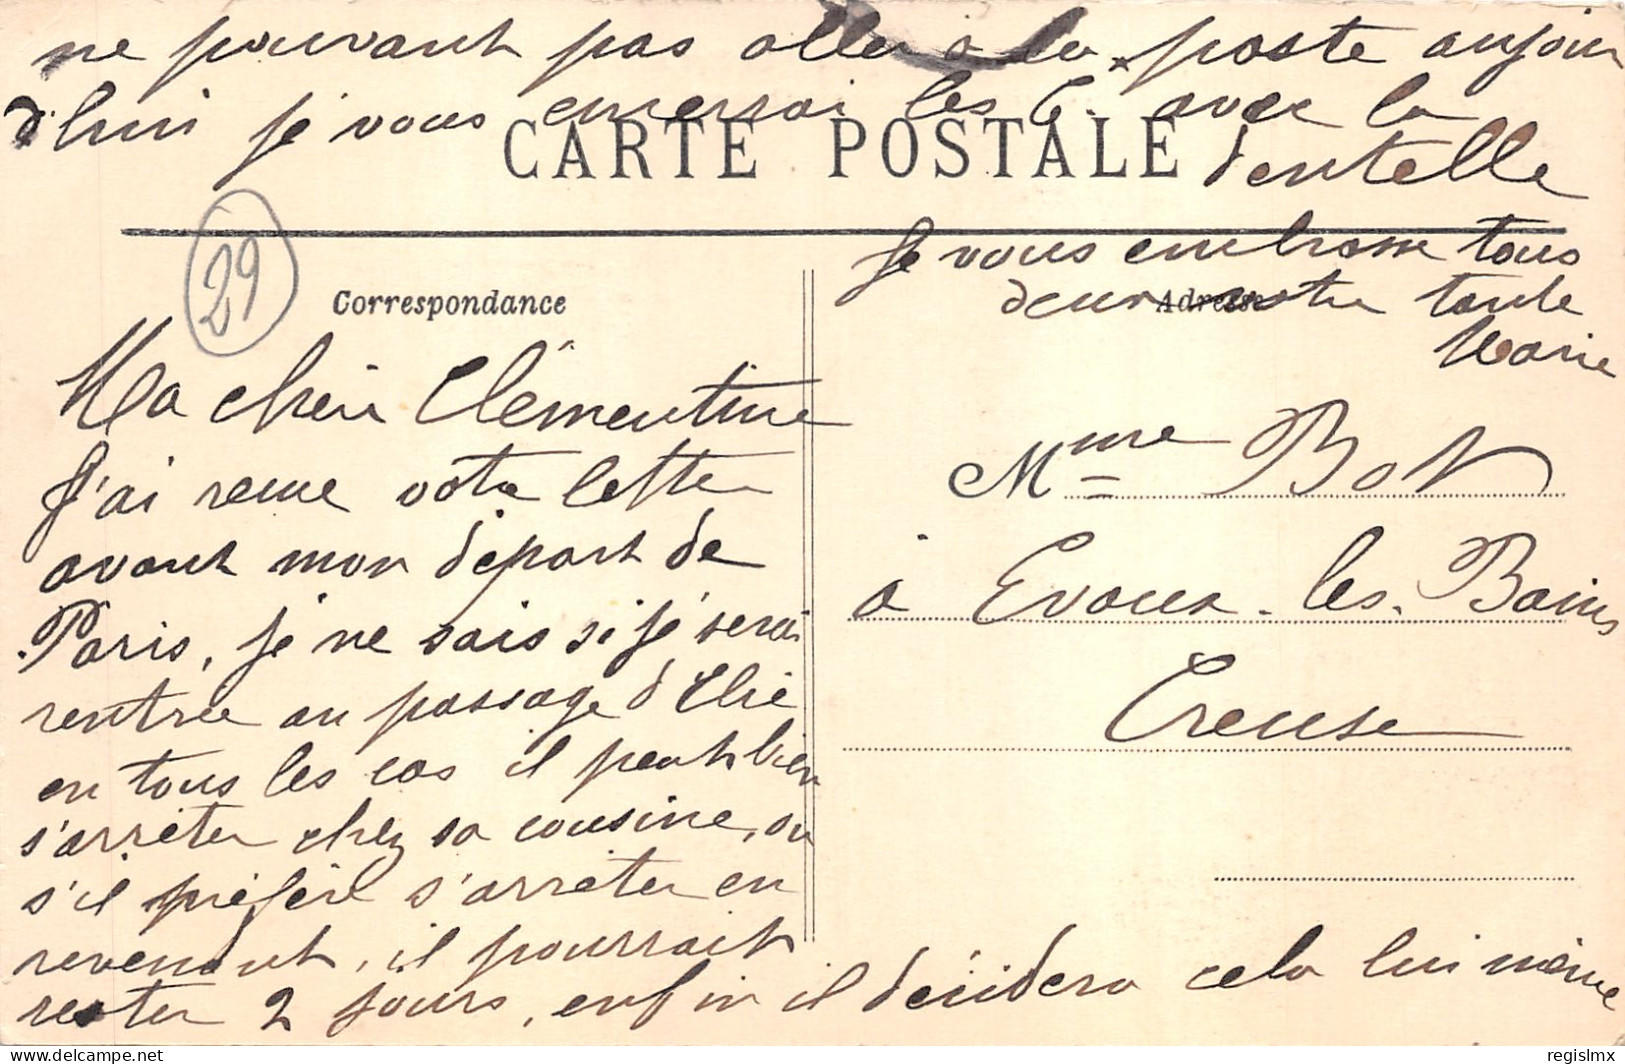 ne pouvant pas aller à la poste aujour
d'hui je vous enverrai les 6. avec la
dentelle
CARTE POSTALE
Je vous embrasse tous
deux votre tante
Marie
29
Correspondance
Adresse
Ma chère Clémentine
J'ai reçue votre lettre
avant mon départ de
Paris, je ne sais si je serai
rentrée au passage d'Elie
en tous les cas il peut bien
s'arrêter chez sa cousine, ou
s'il préfère s'arrêter en
revenant, il pourrait
rester 2 jours, enfin il décidera cela lui même
Mme Bot
à Evaux-les-Bains
Creuse
delcampe.net
regislmx